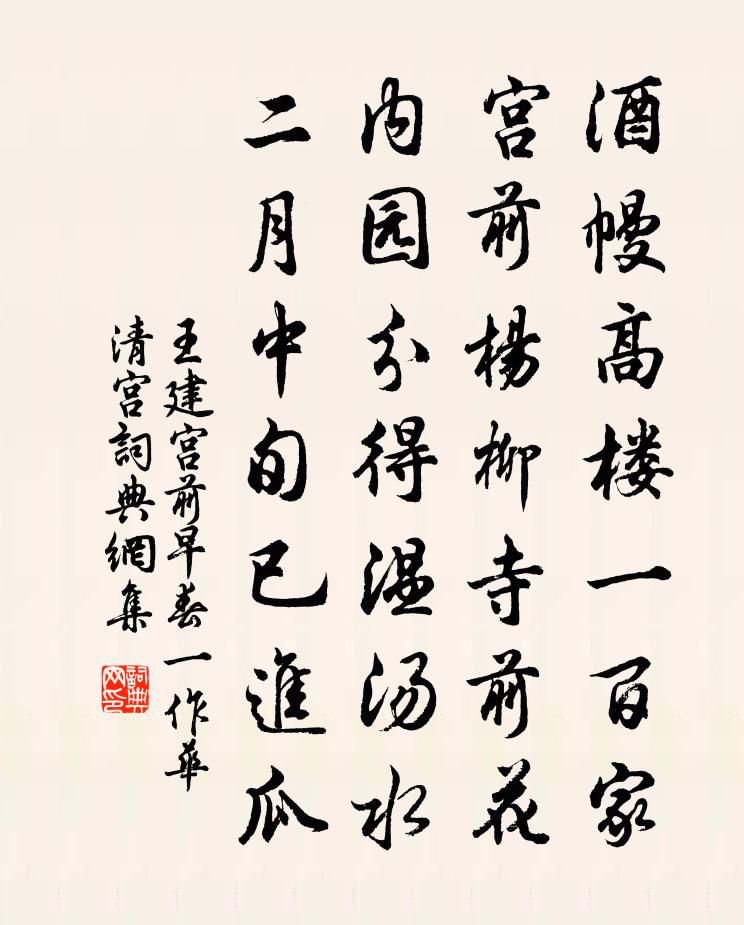 酒幔高楼一百家
宫前楊柳寺前花
内园分得温汤水
二月中旬已進瓜
王建宫前早春一作華
清宫詞典網集
詞典网印